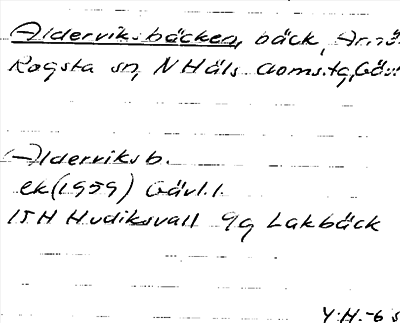 Alderviksbäcken, bäck, Arnö
Rogsta sn, N Häls. doms.tg, Gävl
Alderviksb.
ek (1959) Gävl. l.
15H Hudiksvall 9g Lakbäck
Y.H.-6